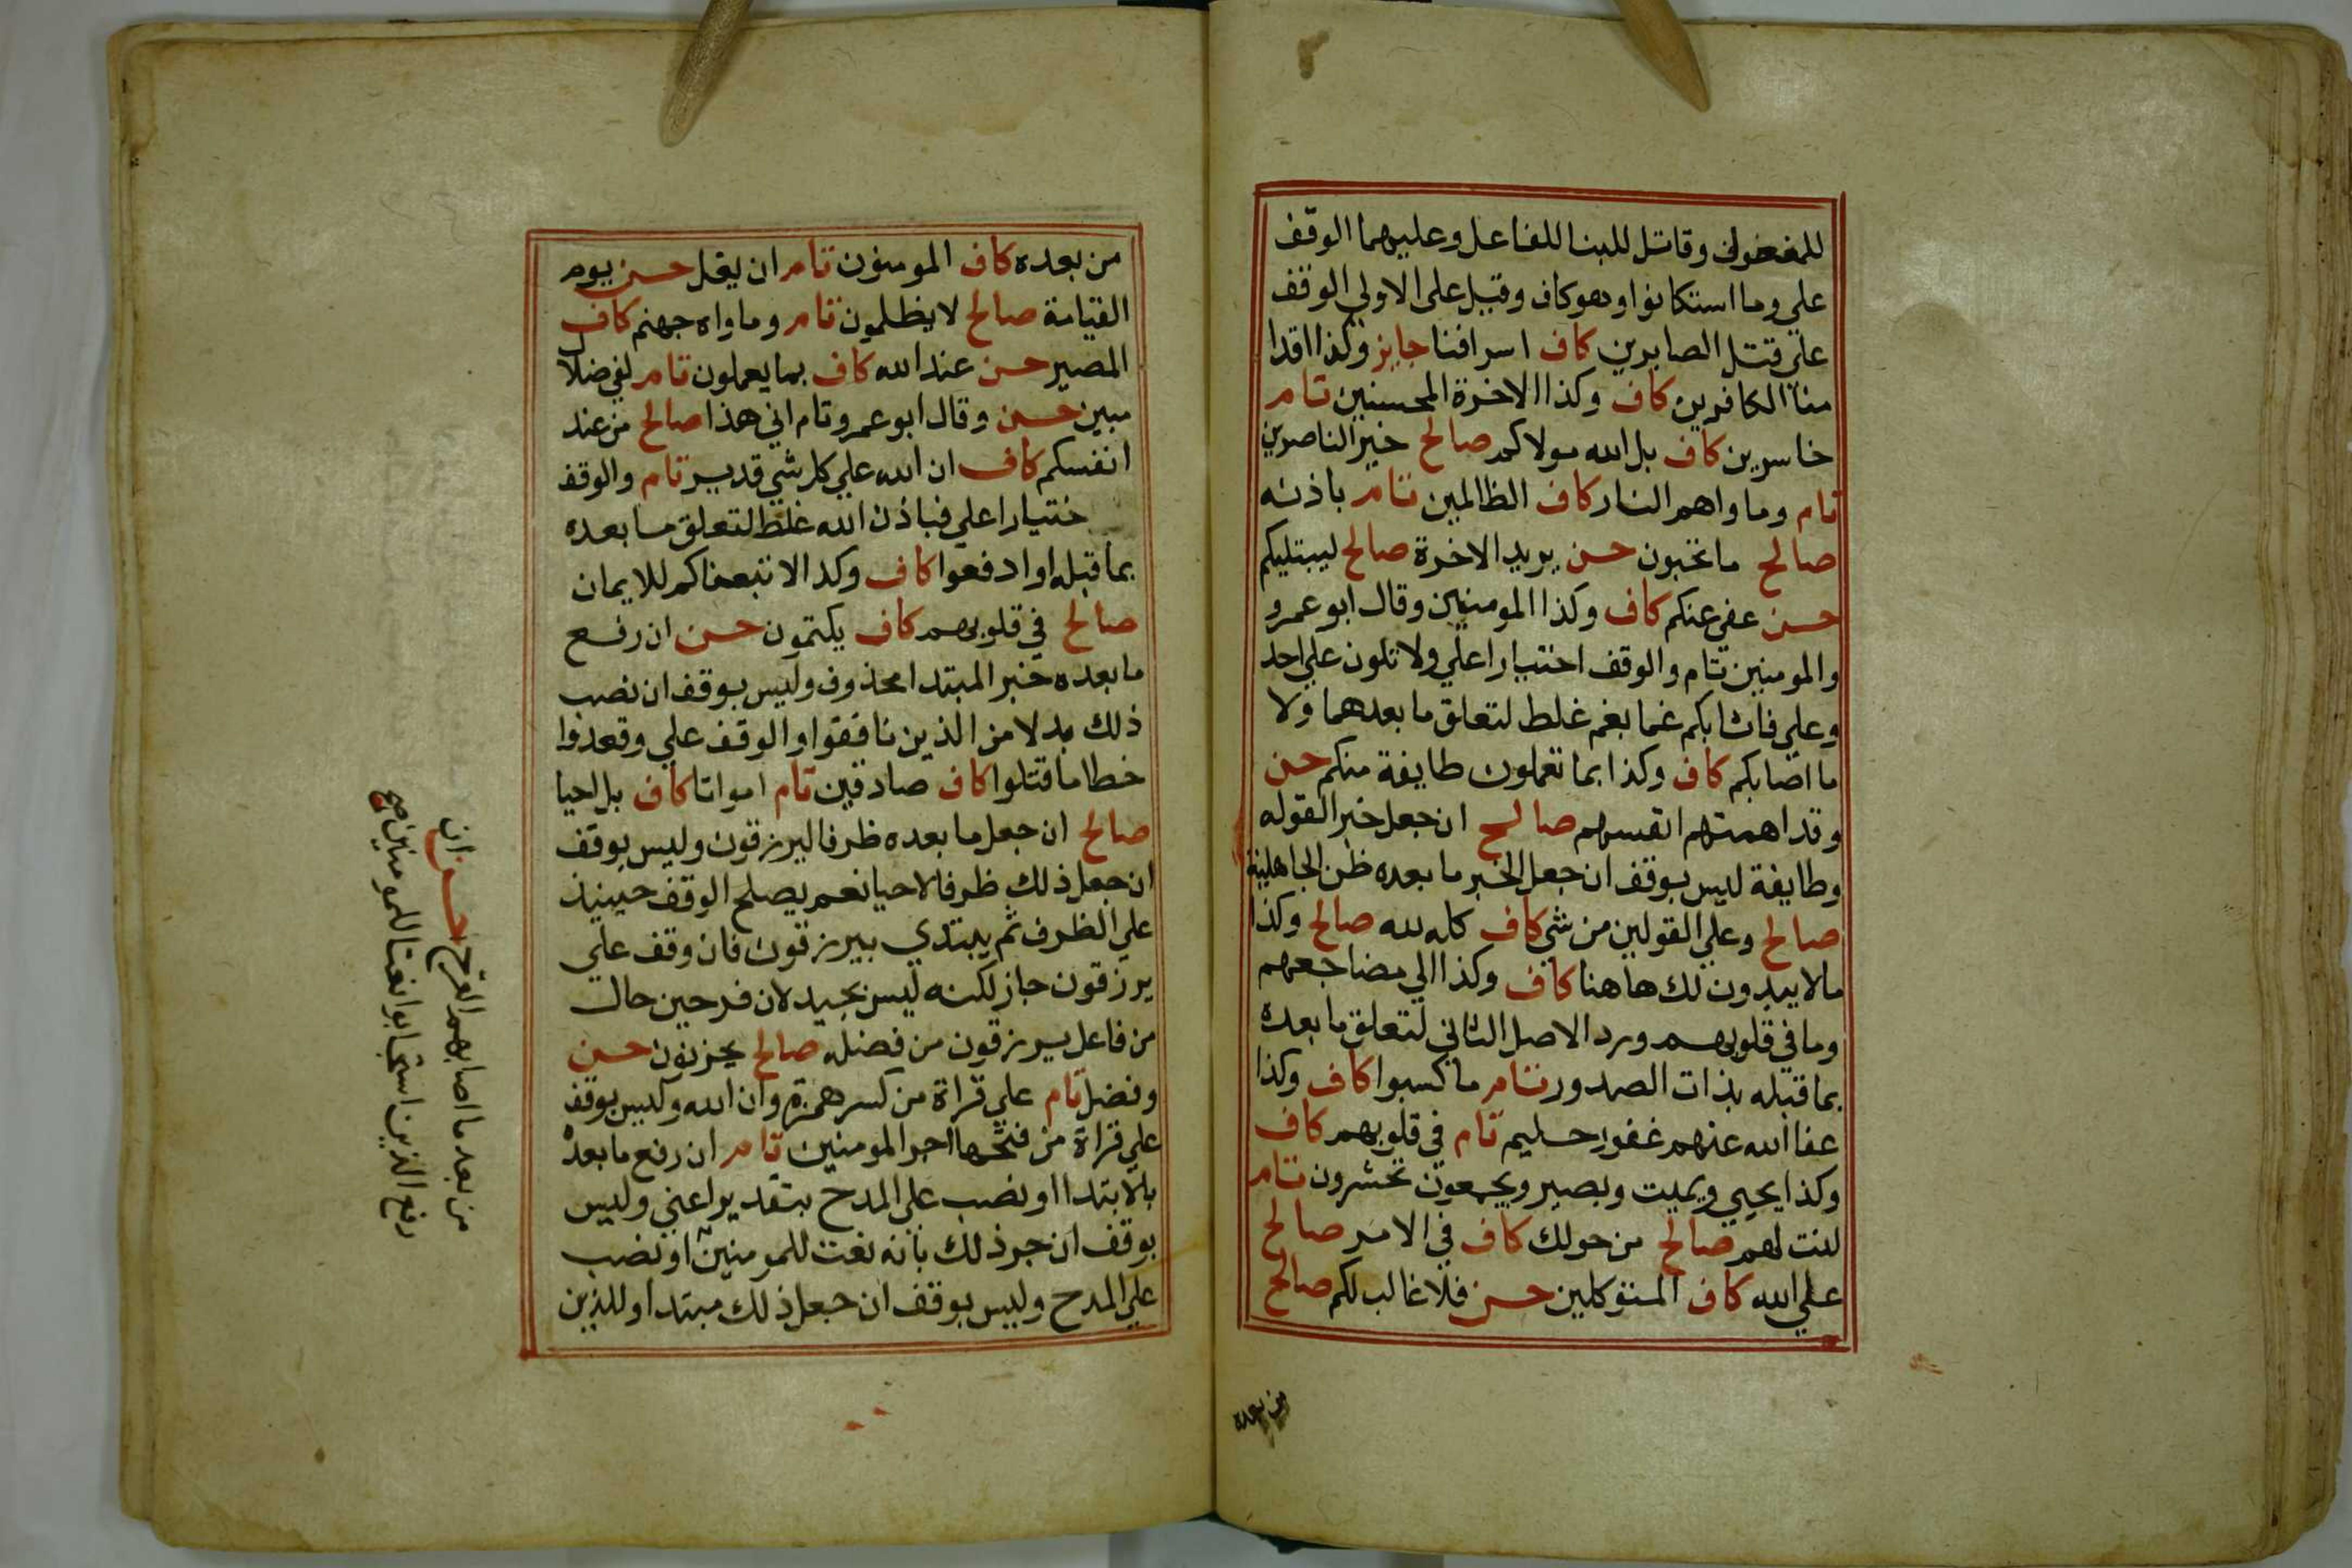 للمفعول وقاتل للبنا للفاعل وعليهما الوقف
علي وما استكانوا وهو كاف وقيل علي الاولي الوقف
علي قتل الصابرين كاف اسرافنا جايز وكذا اقدا
منا الكافرين كاف وكذا الاخرة المحسنين تام
خاسرين كاف بل الله مولاكم صالح خير الناصرين
تام وماواهم النار كاف الظالمين تام باذنه
صالح ما تحبون حسن يريد الاخرة صالح ليبتليكم
حسن عفي عنكم كاف وكذا المومنين وقال ابو عمرو
والمومنين تام والوقف اختيارا علي ولا تلون علي احد
وعلي فاثابكم غما بغم غلط لتعلق ما بعدهما ولا
ما اصابكم كاف وكذا بما تعملون طايفة منكم حسن
وقد اهمتهم انفسهم صالح ان جعل خبرا لقوله
وطايفة ليس بوقف ان جعل الخبر ما بعده ظن الجاهلية
صالح وعلي القولين من شي كاف كله لله صالح وكذا
ما لا يبدون لك هاهنا كاف وكذا الي مضاجعهم
وما في قلوبهم ورد الاصل الثاني لتعلق ما بعده
بما قبله بذات الصدور تام ما كسبوا كاف وكذا
عفا الله عنهم غفور حليم تام في قلوبهم كاف
وكذا يحيي ويميت وبصير ويجمعون تحشرون تام
لنت لهم صالح من حولك كاف في الامر صالح
علي الله كاف المتوكلين حسن فلا غالب لكم صالح
من بعده
من بعده كاف المومنون تام ان يغل حسن يوم
القيامة صالح لا يظلمون تام وماواه جهنم كاف
المصير حسن عند الله كاف بما يعملون تام لفي ضلال
مبين حسن وقال ابو عمرو تام اني هذا صالح من عند
انفسكم كاف ان الله علي كل شي قدير تام والوقف
ختيارا علي فباذن الله غلط لتعلق ما بعده
بما قبله او ادفعوا كاف وكذا لاتبعناكم للايمان
صالح في قلوبهم كاف يكتمون حسن ان رفع
ما بعده خبر المبتدا محذوف وليس بوقف ان نصب
ذلك بدلا من الذين نافقوا والوقف علي وقعدوا
خطا ما قتلوا كاف صادقين تام امواتا كاف بل احيا
صالح ان جعل ما بعده ظرفا ليرزقون وليس بوقف
ان جعل ذلك ظرفا لاحيا نعم يصلح الوقف حينيذ
علي الظرف ثم يبتدي بيرزقون فان وقف علي
يرزقون جاز لكنه ليس بجيد لان فرحين حال
من فاعل يرزقون من فضله صالح يحزنون حسن
وفضل تام علي قراة من كسر همزة وان الله وليس بوقف
علي قراة من فتحها اجر المومنين تام ان رفع ما بعده
بالابتدا او نصب علي المدح بتقدير اعني وليس
بوقف ان جر ذلك بانه نعت للمومنين او نصب
علي المدح وليس بوقف ان جعل ذلك مبتدا وللذين
من بعد ما اصابهم القرح حسن ان
رفع الذين استجابوا نعتا للمومنين صح